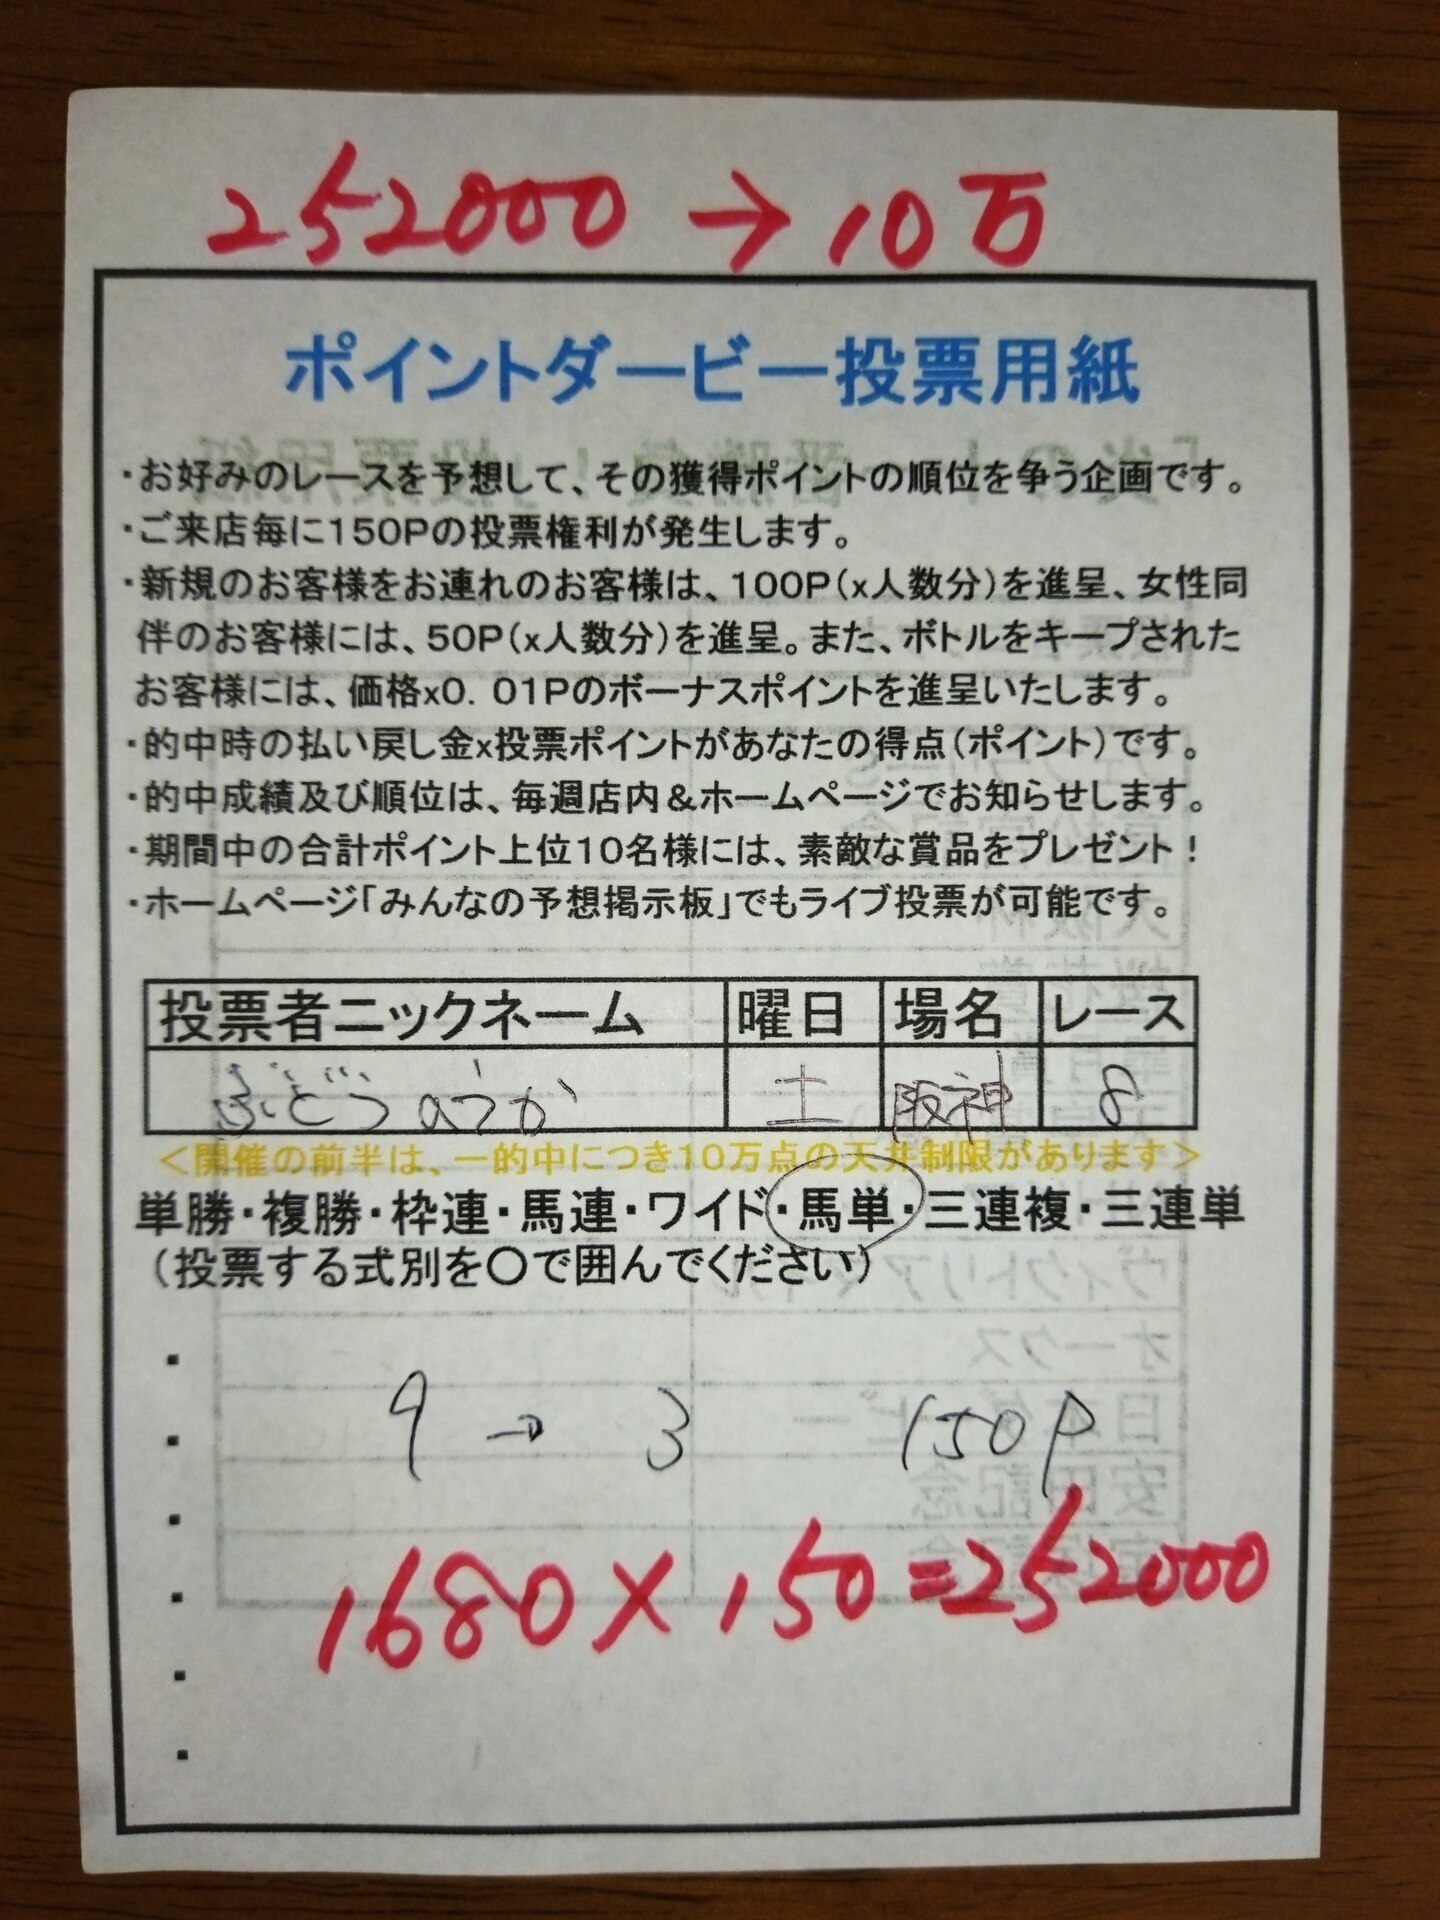 252000→10万
ポイントダービー投票用紙
・お好みのレースを予想して、その獲得ポイントの順位を争う企画です。
・ご来店毎に150Pの投票権利が発生します。
・新規のお客様をお連れのお客様は、100P(x人数分)を進呈、女性同
伴のお客様には、50P(x人数分)を進呈。また、ボトルをキープされた
お客様には、価格x0.01Pのボーナスポイントを進呈いたします。
・的中時の払い戻し金x投票ポイントがあなたの得点(ポイント)です。
・的中成績及び順位は、毎週店内&ホームページでお知らせします。
・期間中の合計ポイント上位10名様には、素敵な賞品をプレゼント!
・ホームページ「みんなの予想掲示板」でもライブ投票が可能です。
投票者ニックネーム 曜日 場名 レース
ぶどうのうか 土 阪神 8
<開催の前半は、一的中につき10万点の天井制限があります>
単勝・複勝・枠連・馬連・ワイド・馬単・三連複・三連単
(投票する式別を〇で囲んでください)
9→3 150P
1680×150=252000